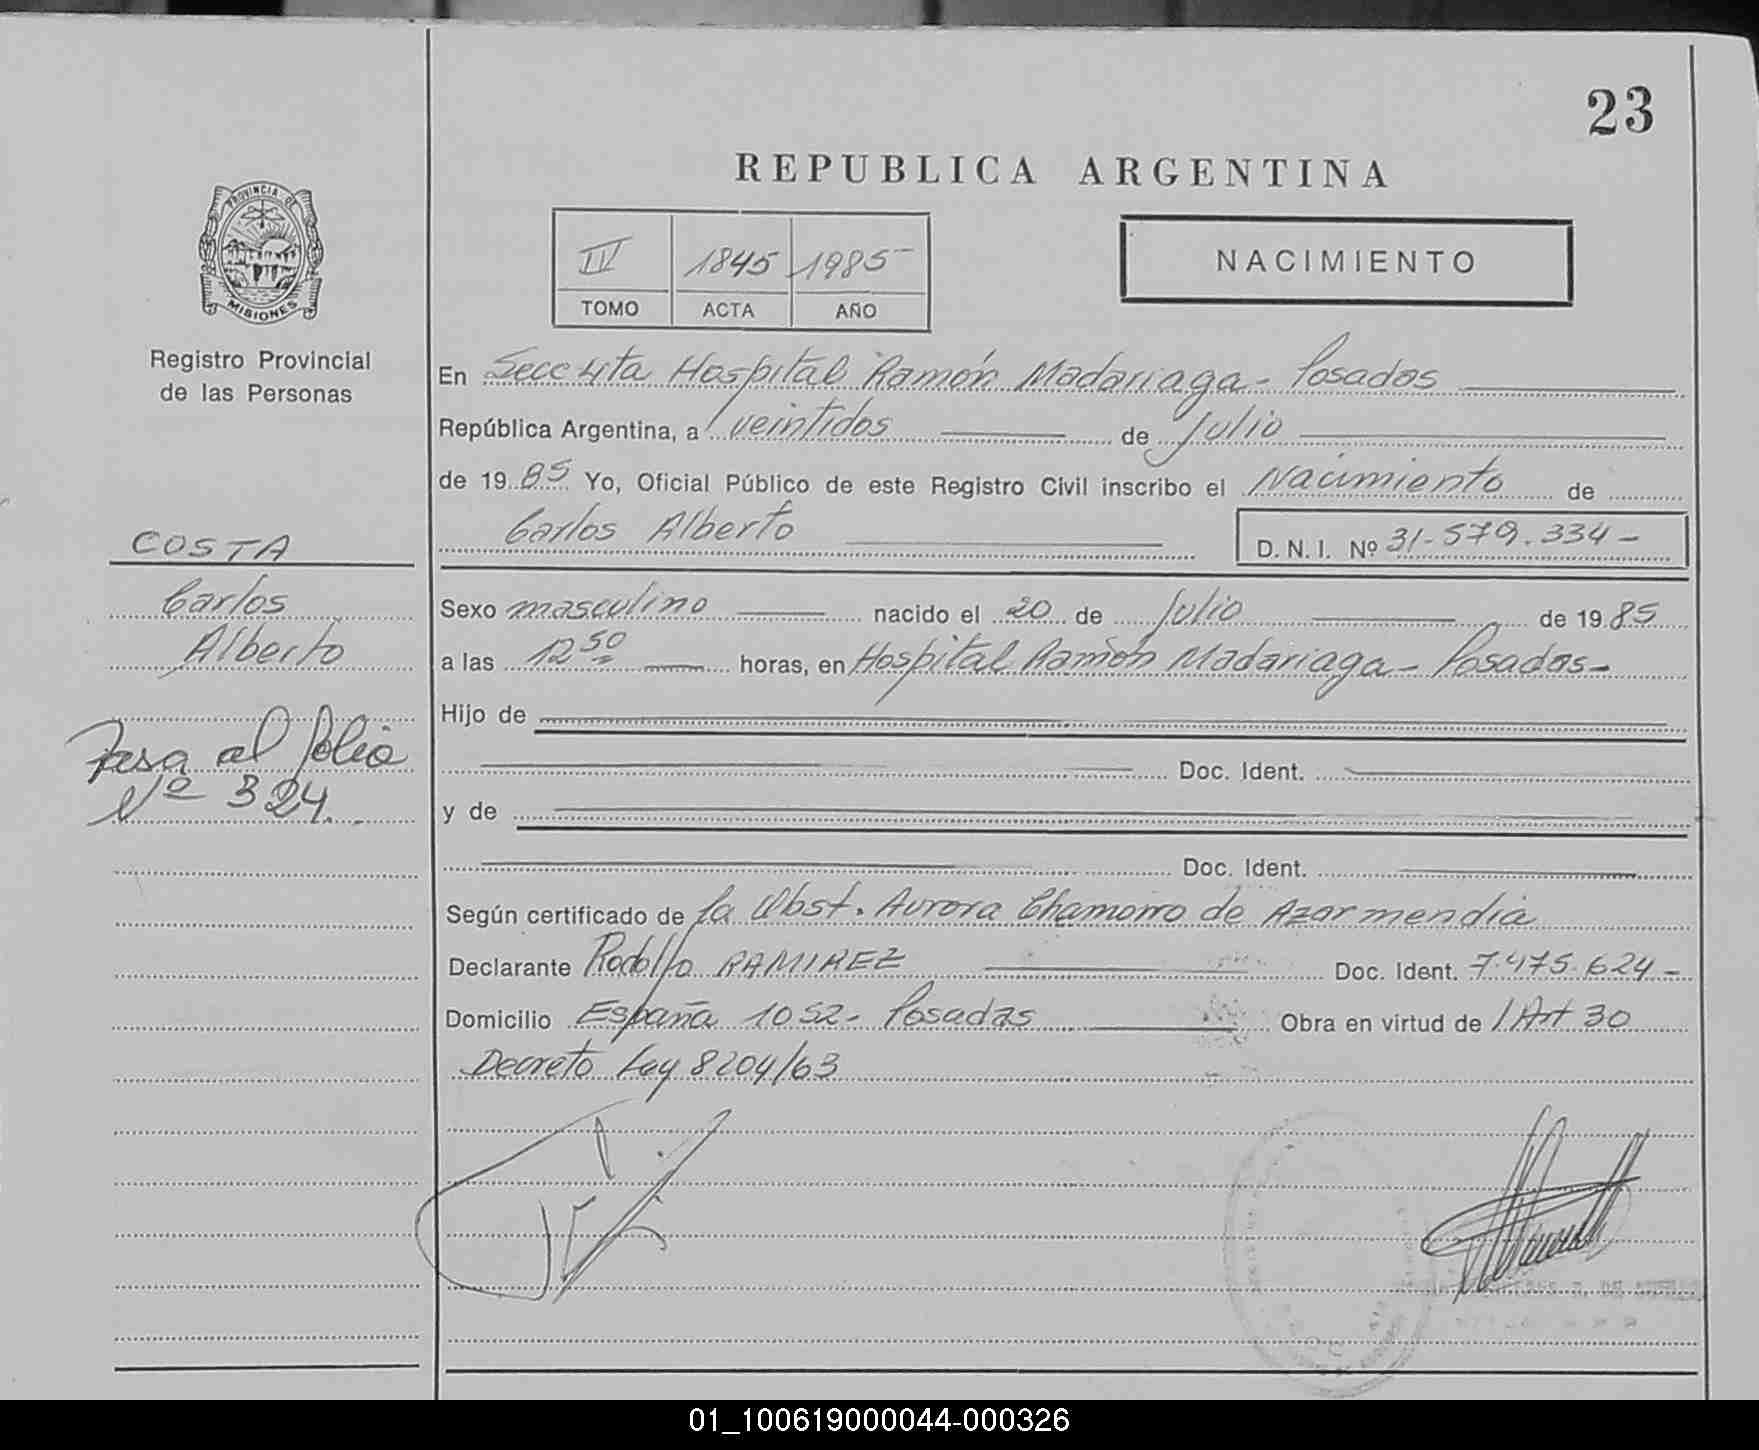 23
REPUBLICA ARGENTINA
PROVINCIA DE
MISIONES
Registro Provincial
de las Personas
1845 1985
TOMO ACTA AÑO
NACIMIENTO
En Secc 4ta Hospital Ramón Madariaga - Posadas
República Argentina, a veintidos de Julio
de 1985 Yo, Oficial Público de este Registro Civil inscribo el Nacimiento de
Carlos Alberto D. N. I. Nº 31-579.334-
COSTA
Carlos
Alberto
Pasa al folio
Nº 324.
Sexo masculino nacido el 20 de Julio de 1985
a las 12 50 horas, en Hospital Ramón Madariaga - Posadas-
Hijo de
Doc. Ident.
y de
Doc. Ident.
Según certificado de la Obst. Aurora Chamorro de Azarmendia
Declarante Rodolfo RAMIREZ Doc. Ident. 7.475.624-
Domicilio España 1052- Posadas Obra en virtud de /Art 30
Decreto Ley 8204/63
01_100619000044-000326